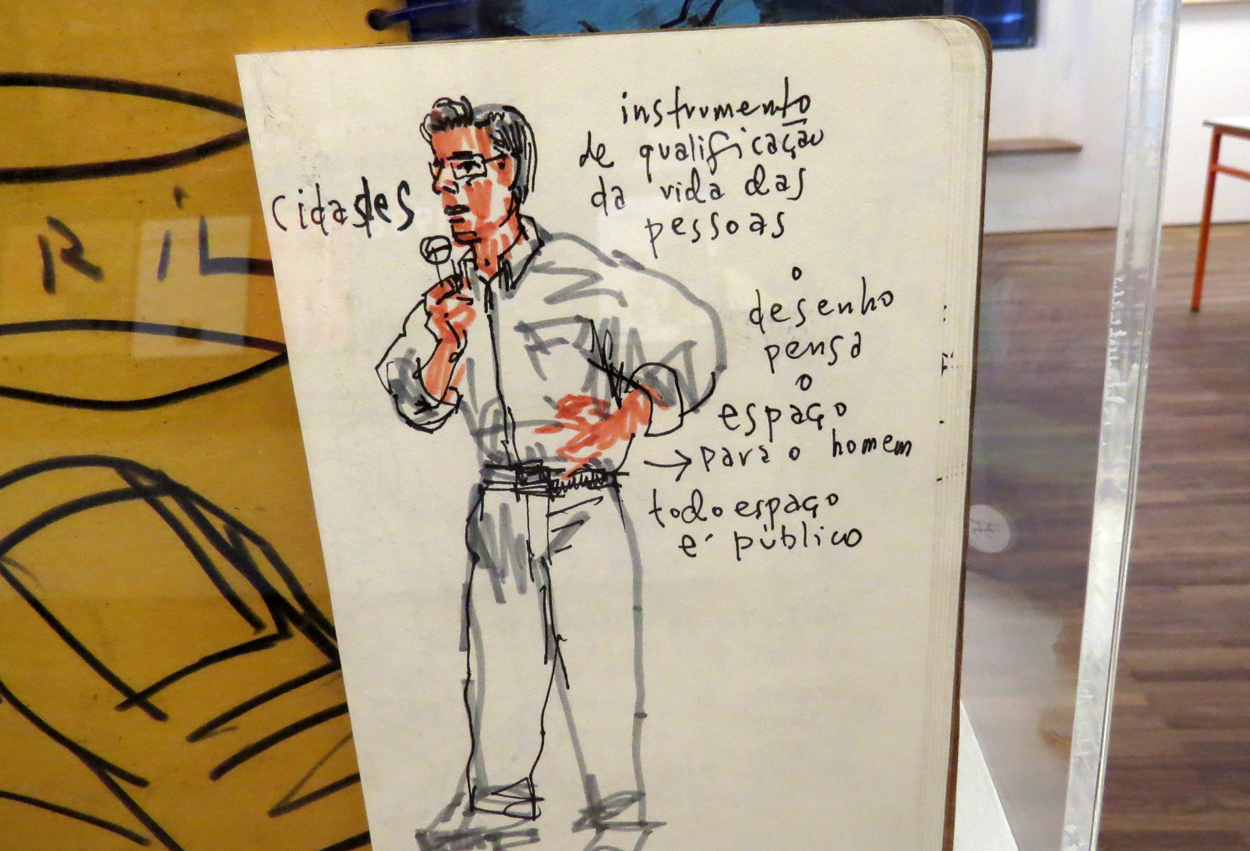 cidades
instrumento
de qualificação
da vida das
pessoas
o
desenho
pensa
o
espaço
→ para o homem
todo espaço
é público
RiL